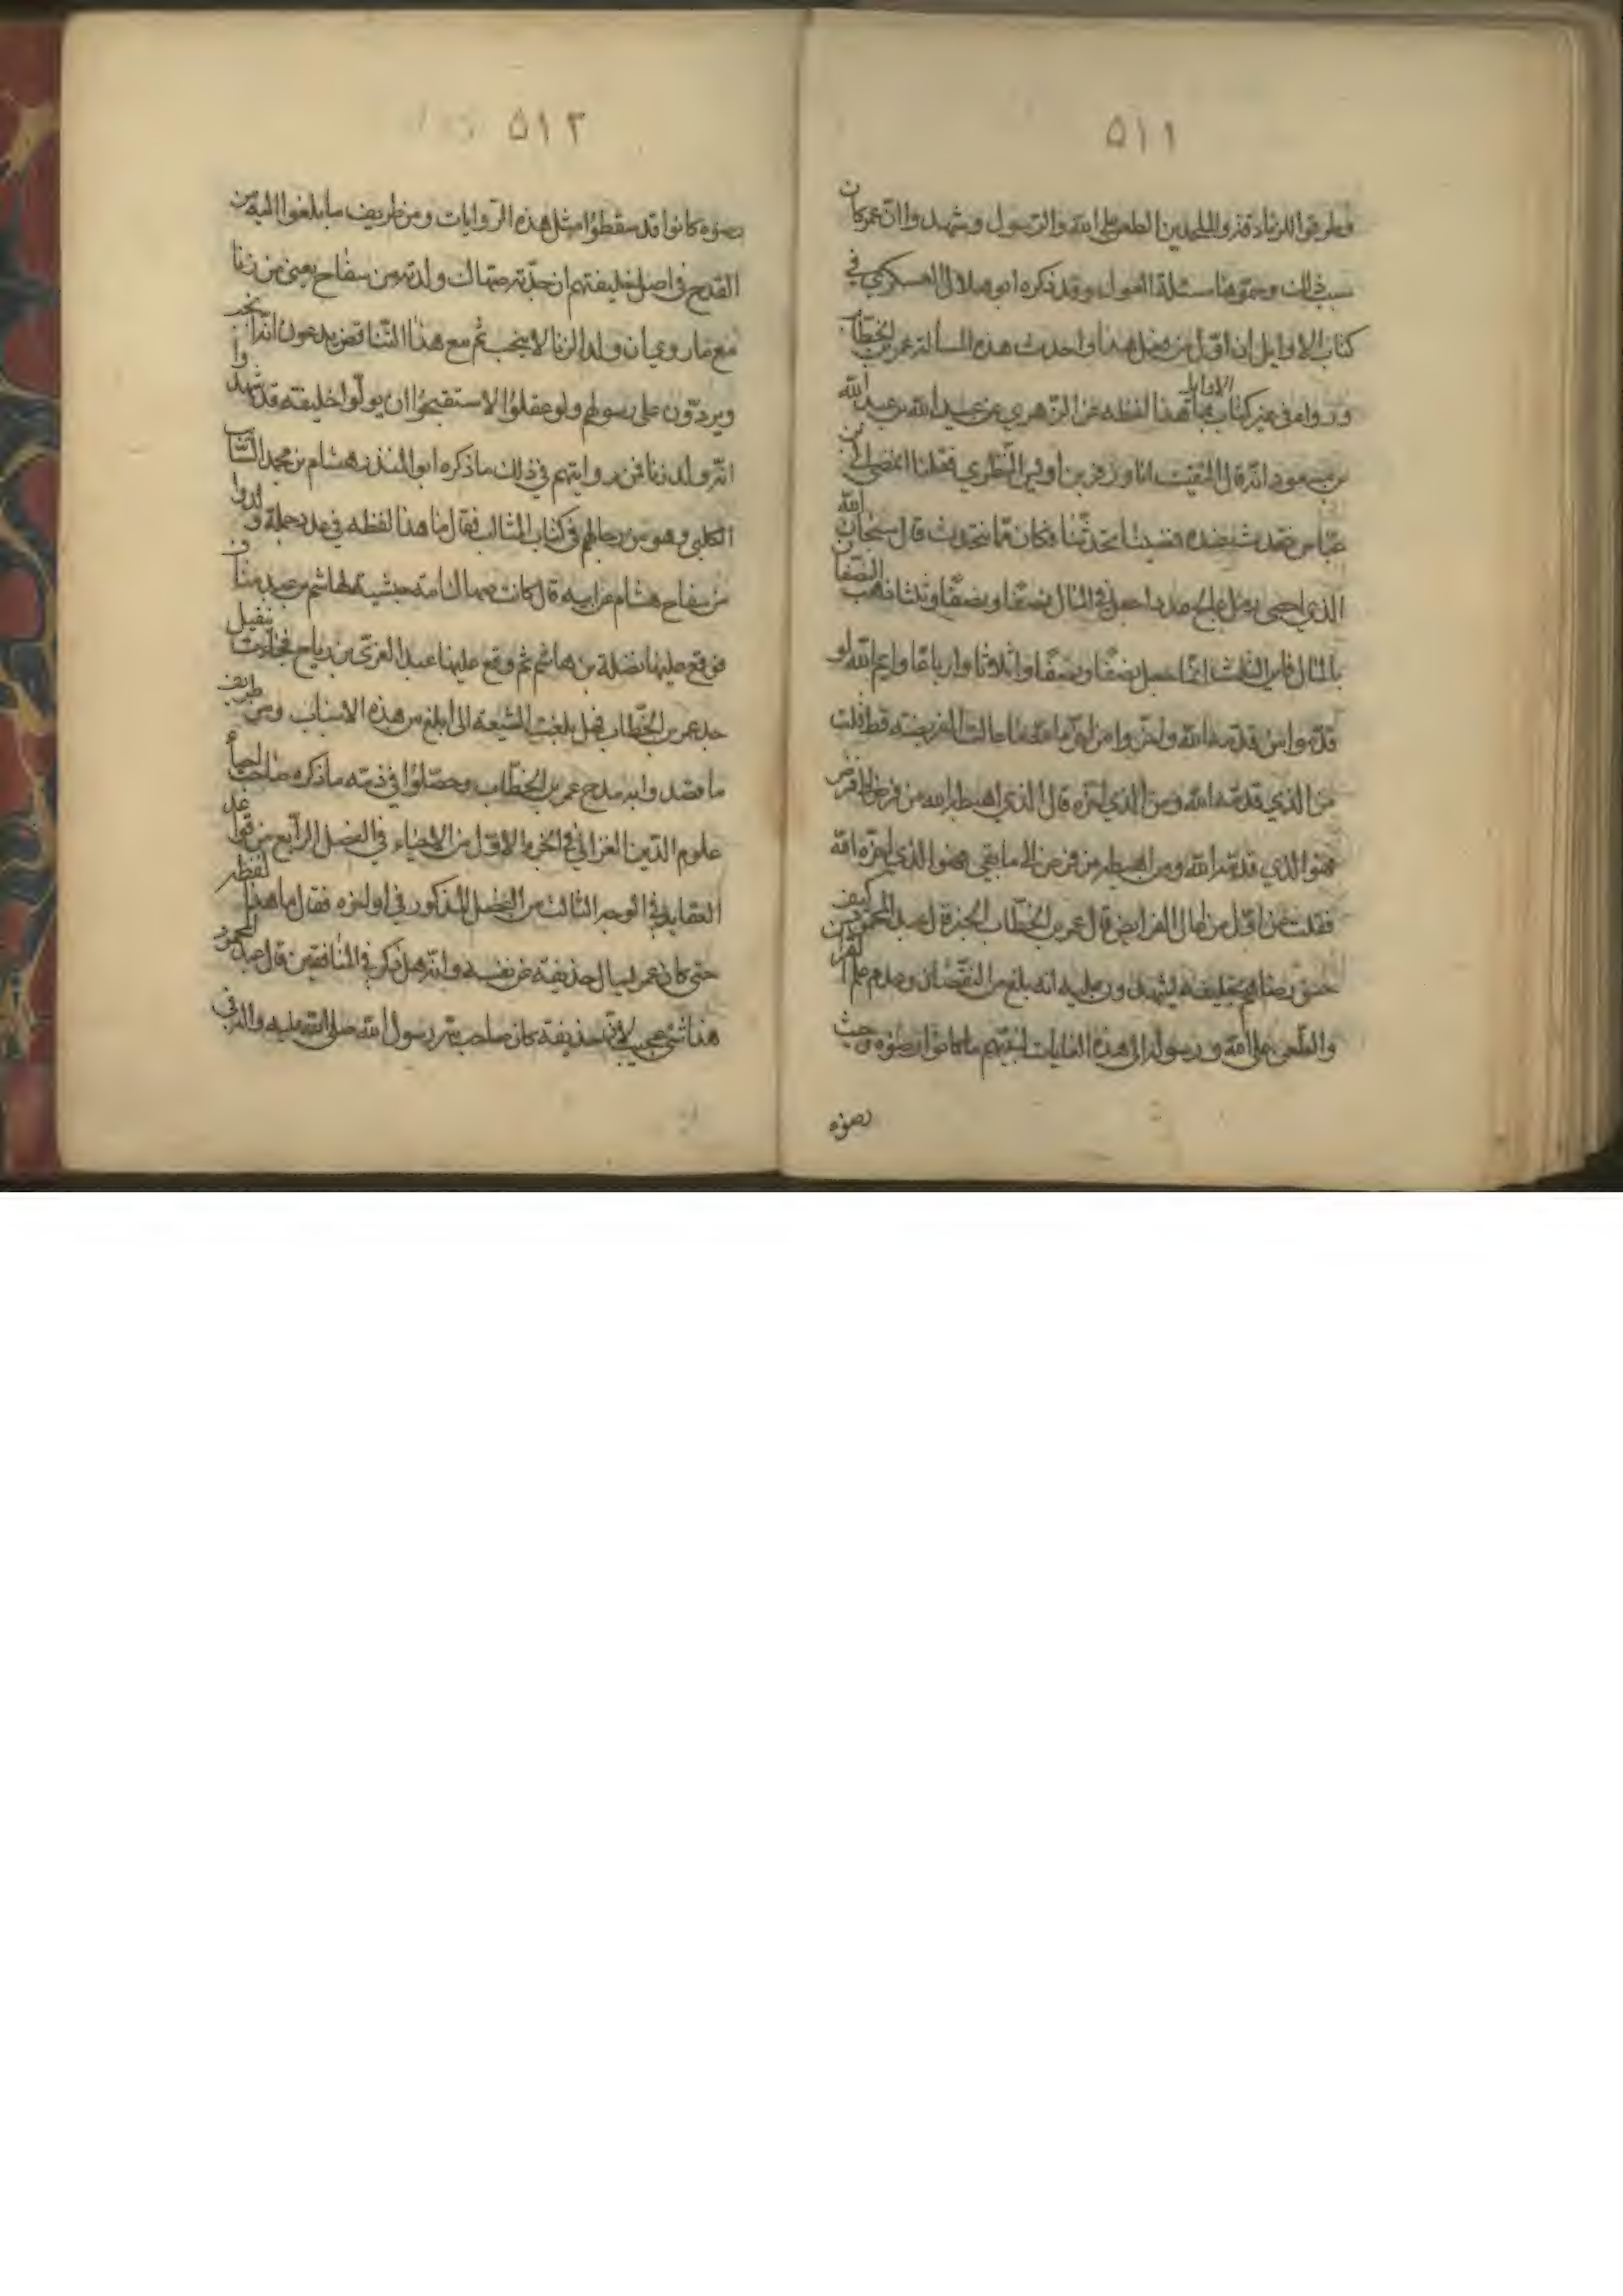 ٥١١
وطرقوا للزنادقة والملحدين الطعن على الله والرسول وشهدوا ان عمر كان
سبب ذلك وسموها مسئلة العول وقد ذكره ابو هلال العسكري في
كتاب الاوايل ان اول من فعل هذا واحدث هذه المسألة عمر بن الخطاب
ورواه في غير كتاب الاوايل هذا لفظه عن الزهري عن عبيد الله بن عبد الله
بن مسعود انه قال التقيت انا وزفر بن اوس النظري فقلنا نمضي الى ابن
عباس نتحدث عنده فمضينا نتحدثنا فكان مما نتحدث قال سبحان الله
الذي احصى رمل عالج عددا جعل في المال نصفا ونصفا وثلثا ذهب النصفان
بالمال فاين الثلث انما جعل نصفا ونصفا واثلاثا وارباعا وايم الله لو
قدموا من قدمه الله واخروا من اخره الله ما عالت الفريضة قط قلت
من الذي قدمه الله ومن الذي اخره قال الذي اهبطه الله من فرض الى فرض
فهو الذي قدمه الله ومن اهبطه من فرض الى ما بقي فهو الذي اخره الله
فقلت فمن اول من اعال الفرايض قال عمر بن الخطاب الخبر قال عبد المحمود كيف
حسن رضاهم بخليفة يشهدون عليه انه بلغ من النقصان وعدم علم القران
والطعن على الله ورسوله الى هذه الغايات ليتهم ما كانوا رضوه وحيث
رضوه
٥١٢
رضوه كانوا قد سقطوا مثل هذه الروايات ومن طريف ما بلغوا اليه من
القدح في اصل خليفتهم ان جدته صهاك ولدته من سفاح يعني من زنا
مع ما رووه ان ولد الزنا لا ينجب ثم مع هذا التناقض يدعون انه انجب
ويردون على رسولهم ولو عقلوا لاستقبحوا ان يولوا خليفة قد شهدوا
انه ولد زنا فمن روايتهم في ذلك ما ذكره ابو المنذر هشام بن محمد السائب
الكلبي وهو من رجالهم في كتاب المثالب فقال ما هذا لفظه في عدد جملة ولدوا
من سفاح هشام عن ابيه قال كانت صهاك امة حبشية لهاشم بن عبد مناف
فوقع عليها نضلة بن هاشم ثم وقع عليها عبد العزى بن رياح فجاءت بنفيل
جد عمر بن الخطاب فهل بلغت الشيعة الى ابلغ من هذه الاسباب ومن طرايف
ما قصدوا به مدح عمر بن الخطاب وحصلوا في ذمه ما ذكره صاحب احياء
علوم الدين الغزالي في الجزء الاول من الاحياء في الفصل الرابع من قواعد
العقايد في الوجه الثالث من الفصل المذكور في اواخره فقال ما هذا لفظه
حتى كان عمر ليسال حذيفة عن نفسه وانه هل ذكر في المنافقين قال عبد المحمود
هذا شئ عجيب لان حذيفة كان صاحب سر رسول الله صلى الله عليه واله في